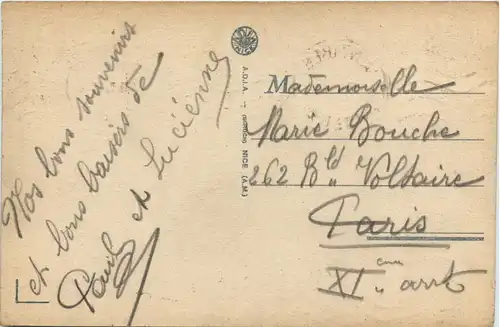 Nos bons souvenirs
et bons baisers de
Paul et Lucienne
A.D.I.A. — NICE (A.M.)
Mademoiselle
Marie Bouche
262 Bld Voltaire
Paris
XIème arrt